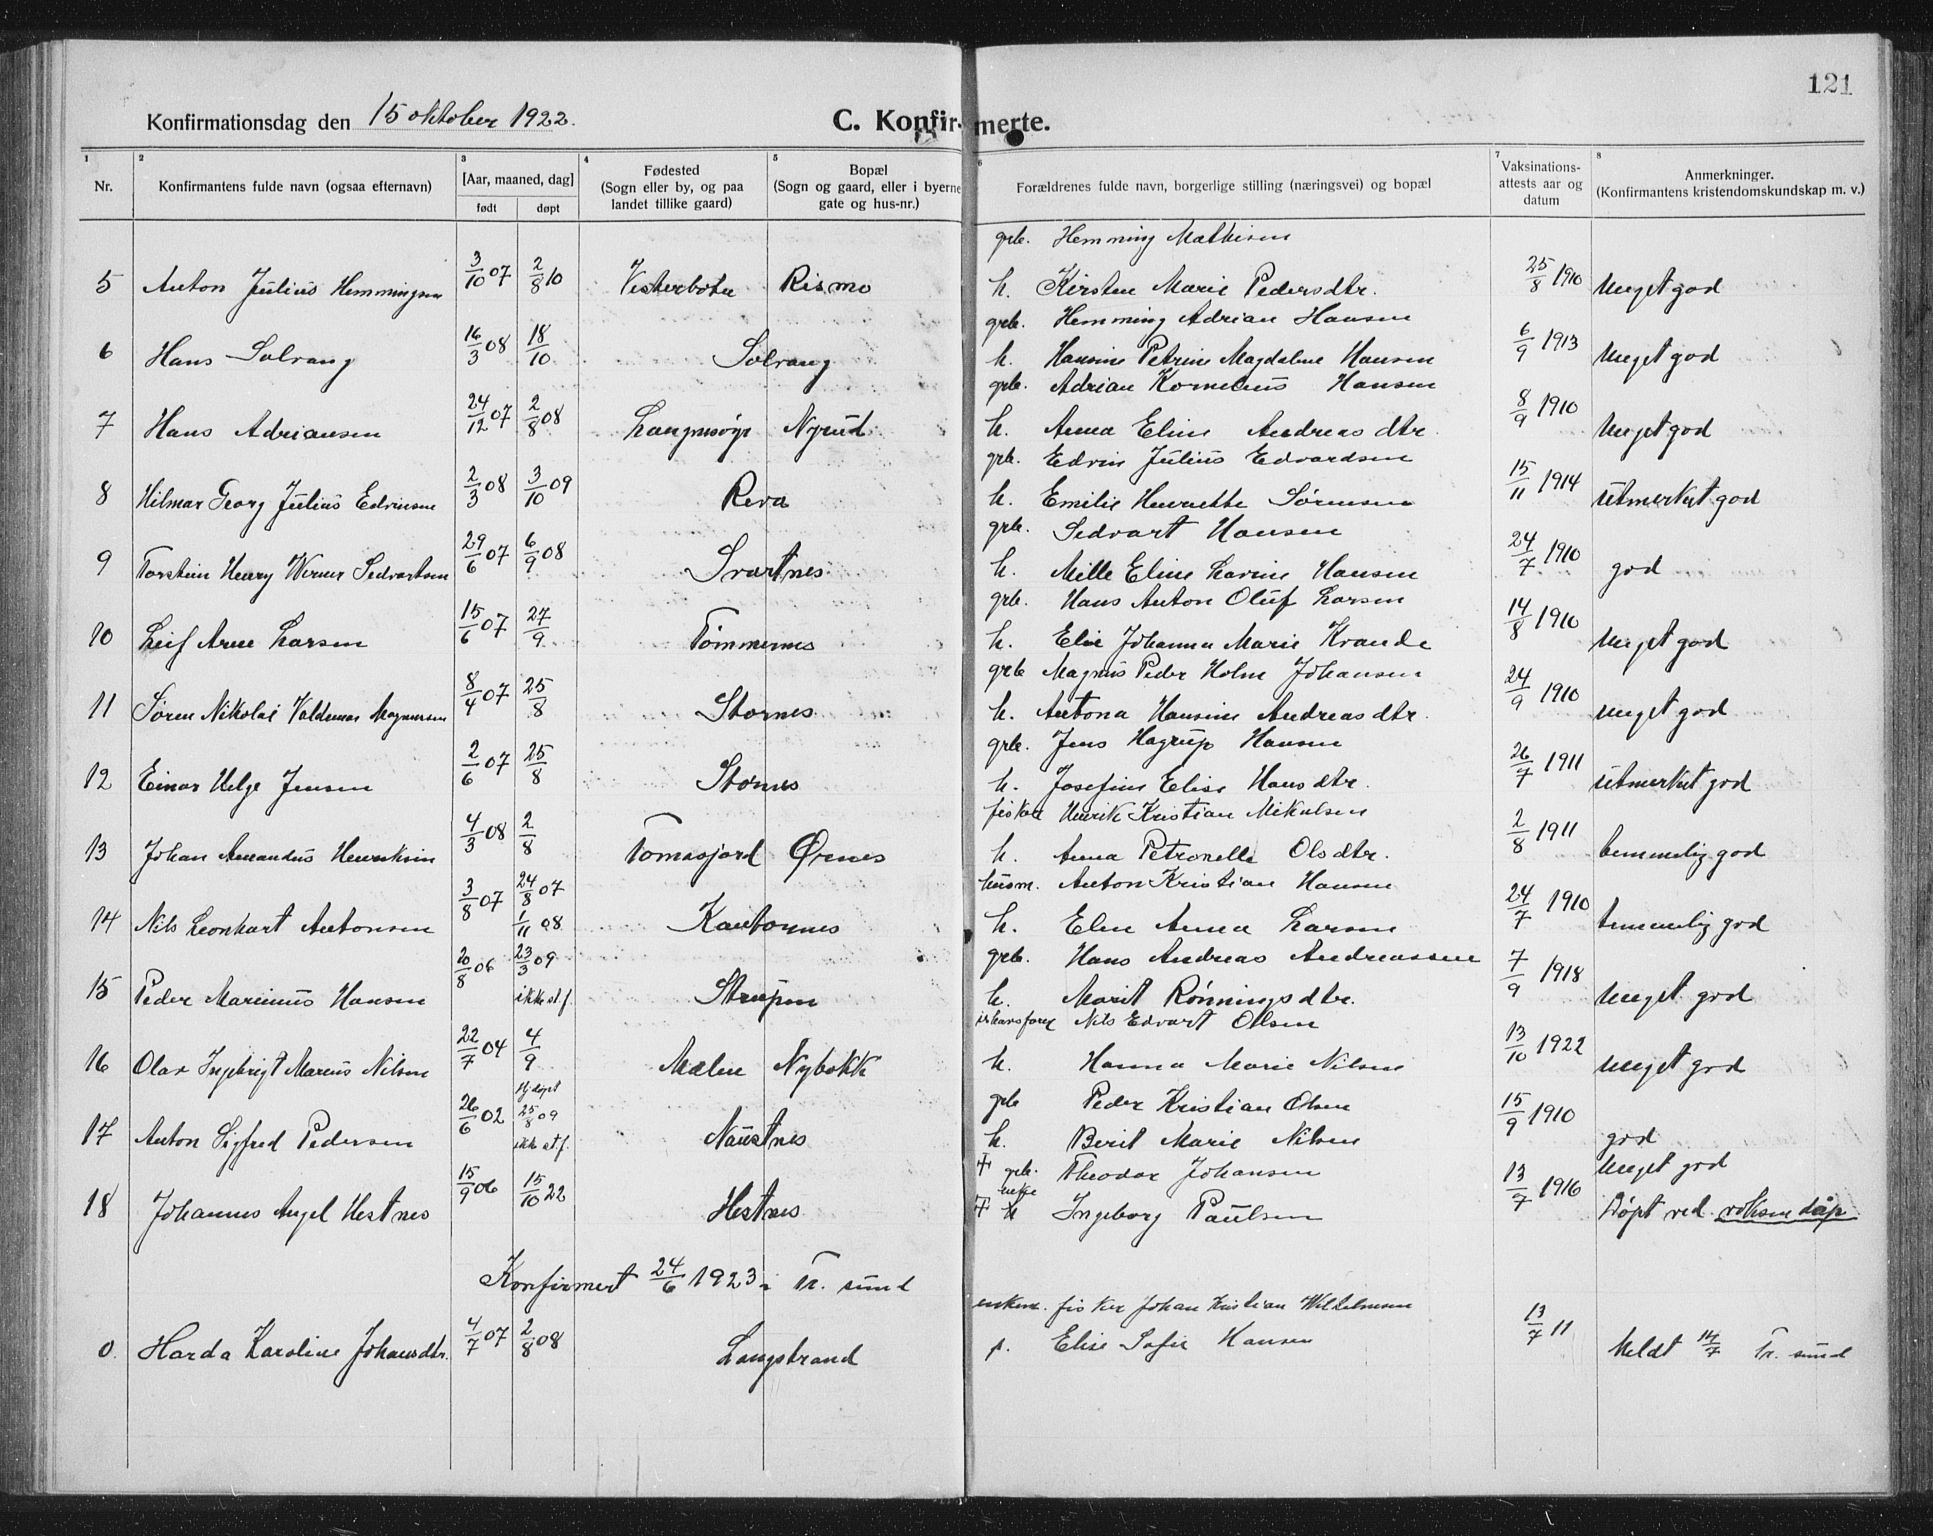 121
Konfirmationsdag den 15 oktober 1922.
C. Konfirmerte.
1 2 3 4 5 6 7 8
Nr. Konfirmantens fulde navn (ogsaa efternavn) [Aar, maaned, dag] født døpt Fødested (Sogn eller by, og paa landet tillike gaard) Bopæl (Sogn og gaard, eller i byerne gate og hus-nr.) Forældrenes fulde navn, borgerlige stilling (næringsvei) og bopæl Vaksinations-attests aar og datum Anmerkninger. (Konfirmantens kristendomskundskap m. v.)
grb. Hemming Mathisen
5 Anton Julius Hemmingsen 3/10 07 2/8 10 Vesterbotn Rismo h. Kirsten Marie Pedersdtr. 25/8 1910 meget god
grb. Hemming Adrian Hansen
6 Hans Solvang 16/3 08 18/10 Solvang h. Hansine Petrine Magdalene Hansen 6/9 1913 meget god
grb. Adrian Kornelius Hansen
7 Hans Adriansen 24/12 07 2/8 08 Langnesøyr Nyrud h. Anna Eline Andreasdtr. 8/9 1910 meget god
grb. Edvin Julius Edvardsen
8 Hilmar Georg Julius Edvinsen 2/3 08 3/10 09 Reva h. Emilie Henriette Sørensen 15/11 1914 utmerket god
grb. Sedvart Hansen
9 Torstein Henry Werner Sedvartsen 29/6 07 6/9 08 Svartnes h. Mille Eline Lavine Hansen 24/7 1910 god
grb. Hans Anton Oluf Larsen
10 Leif Arne Larsen 15/6 07 27/9 Tømmernes h. Elie Johanna Marie Krande 14/8 1910 meget god
grb Magnus Peder Holm Johansen
11 Søren Nikolai Valdemar Magnussen 8/4 07 25/8 Stornes h. Antona Hansine Andreasdtr. 24/9 1910 meget god
grb. Jens Hagrup Hansen
12 Einar Helge Jensen 2/6 07 25/8 Stornes h. Josefine Elise Hansdtr. 26/7 1911 utmerket god
fisker Henrik Kristian Mikalsen
13 Johan Amandus Henriksen 4/3 08 2/8 Tomasjord Ørnes h. Anna Petronelle Olsdtr. 2/8 1911 temmelig god
husm. Anton Kristian Hansen
14 Nils Leonhart Antonsen 3/8 07 24/8 07 1/11 08 Kantornes h. Elen Anna Larsen 24/7 1910 temmelig god
grb. Hans Andreas Andreassen
15 Peder Marinius Hansen 20/8 06 23/3 09 ikke st.f. Strupen h. Marit Rønningsdtr. 7/9 1918 meget god
Nils Edvart Olsen
16 Olav Ingebrigt Marcus Nilsen 22/7 04 4/9 Malm Nybakk h. Hanna Marie Nilsen 13/10 1922 meget god
grb Peder Kristian Olsen
17 Anton Sigfred Pedersen 26/6 02 hj.døpt 25/8 09 ikke st.f. Naustnes h. Berit Marie Nilsen 15/9 1910 god
† grb. Theodor Johansen meget god
18 Johannes Angel Hestnes 15/9 06 15/10 22 Hestnes † h Ingeborg Paulsen 13/7 1916 Døpt ved voksen dåp
Konfirmert 24/6 1923 i Tr. sund
enkem. fisker Johan Kristian Wilhelmsen
0. Harda Karoline Johansdtr. 4/7 07 2/8 08 Langstrand p. Elise Sofie Hansen 13/7 11 Meldt 14/7 Tr. sund